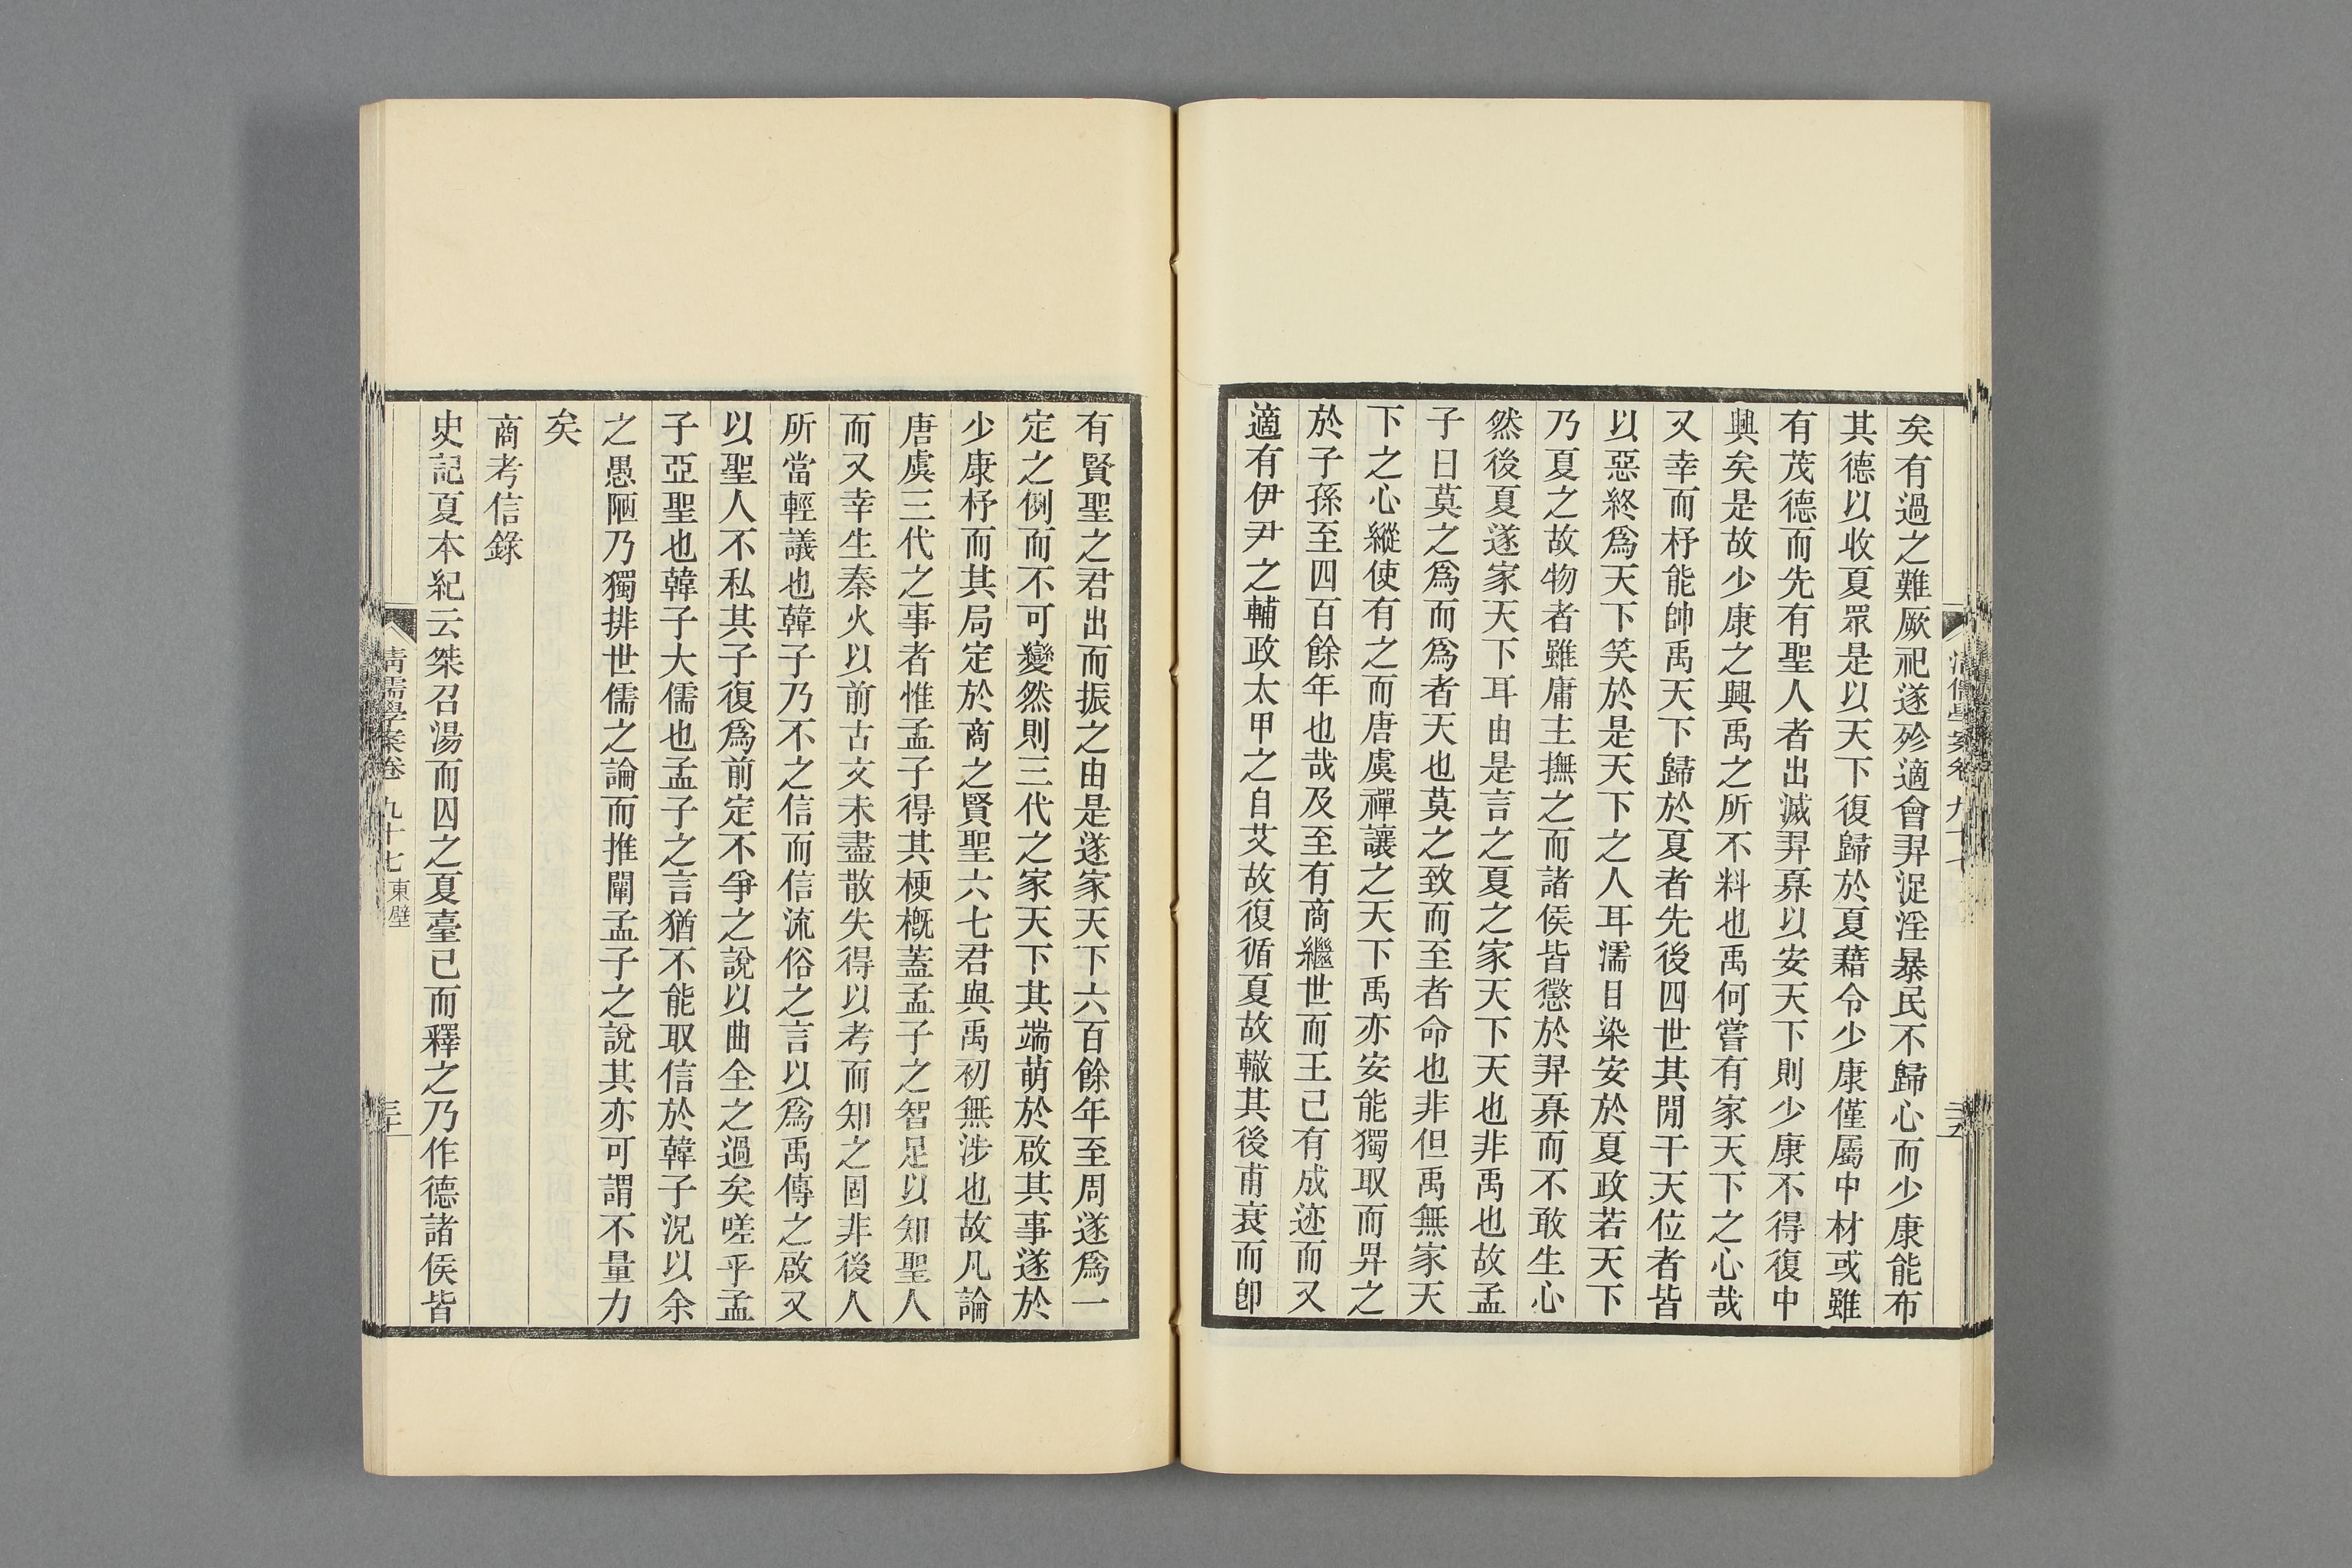 矣有過之難厥祀遂殄適會羿浞淫暴民不歸心而少康能布
其德以收夏眾是以天下復歸於夏藉令少康僅屬中材或雖
有茂德而先有聖人者出滅羿奡以安天下則少康不得復中
興矣是故少康之興禹之所不料也禹何嘗有家天下之心哉
又幸而杼能帥禹天下歸於夏者先後四世其閒干天位者皆
以惡終爲天下笑於是天下之人耳濡目染安於夏政若天下
乃夏之故物者雖庸主撫之而諸侯皆懲於羿奡而不敢生心
然後夏遂家天下耳由是言之夏之家天下天也非禹也故孟
子曰莫之爲而爲者天也莫之致而至者命也非但禹無家天
下之心縱使有之而唐虞禪讓之天下禹亦安能獨取而畀之
於子孫至四百餘年也哉及至有商繼世而王已有成迹而又
適有伊尹之輔政太甲之自艾故復循夏故轍其後甫衰而卽
有賢聖之君出而振之由是遂家天下六百餘年至周遂爲一
定之例而不可變然則三代之家天下其端萌於啟其事遂於
少康杼而其局定於商之賢聖六七君與禹初無涉也故凡論
唐虞三代之事者惟孟子得其梗槪蓋孟子之智足以知聖人
而又幸生秦火以前古文未盡散失得以考而知之固非後人
所當輕議也韓子乃不之信而信流俗之言以爲禹傳之啟又
以聖人不私其子復爲前定不爭之說以曲全之過矣嗟乎孟
子亞聖也韓子大儒也孟子之言猶不能取信於韓子況以余
之愚陋乃獨排世儒之論而推闡孟子之說其亦可謂不量力
矣
商考信錄
史記夏本紀云桀召湯而囚之夏臺已而釋之乃作德諸侯皆
清儒學案卷九十七 東壁